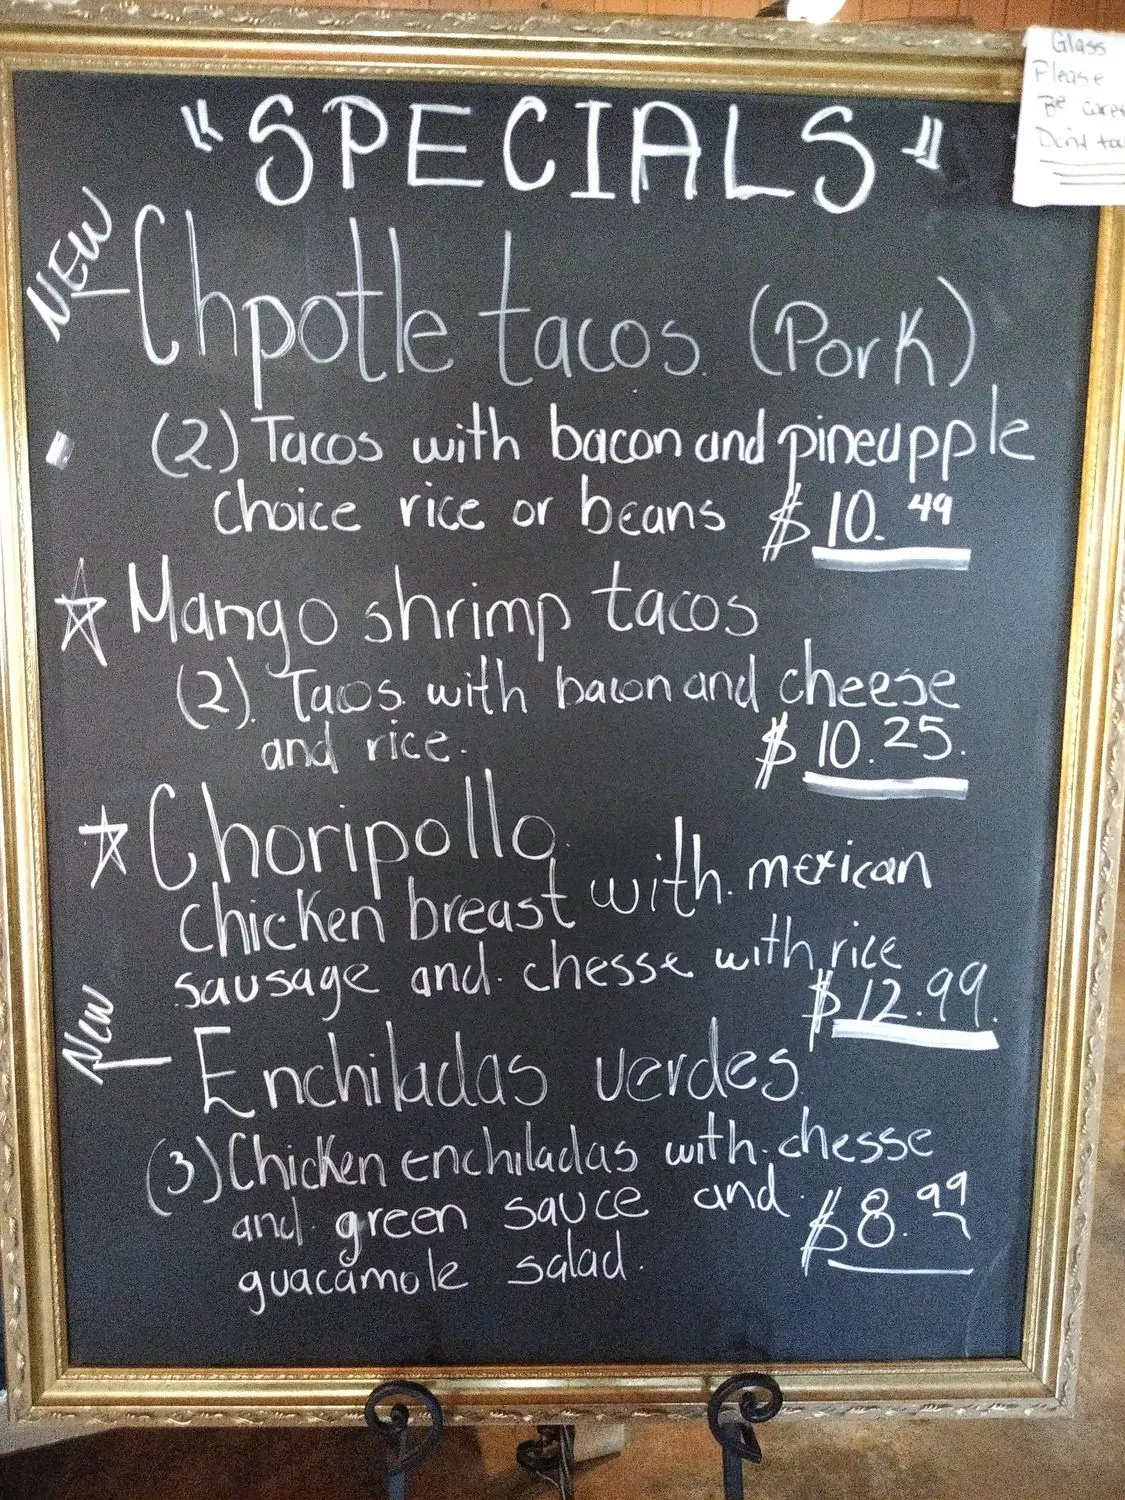 "SPECIALS"
NEW
Chpotle tacos (Pork)
(2) Tacos with bacon and pineapple
choice rice or beans $10.49
Mango shrimp tacos
(2). Tacos with bacon and cheese
and rice. $10.25.
Choripollo
chicken breast with mexican
sausage and chesse with rice
$12.99.
New
Enchiladas verdes
(3) Chicken enchiladas with chesse
and green sauce and $8.99
guacamole salad.
Glass
Please
Be